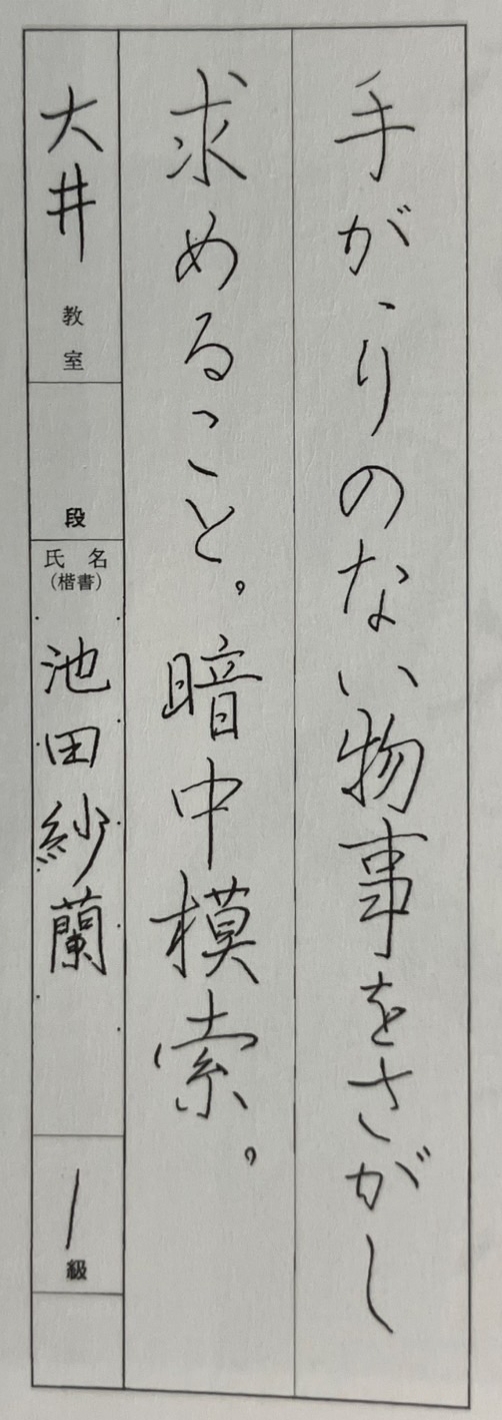 手がゝりのない物事をさがし
求めること。暗中模索。
大井教室
段
氏名
(楷書)
池田紗蘭
1級